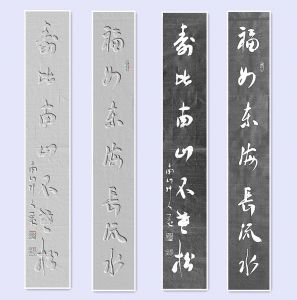 福如东海長流水
寿比南山不老松
福如东海長流水
寿比南山不老松